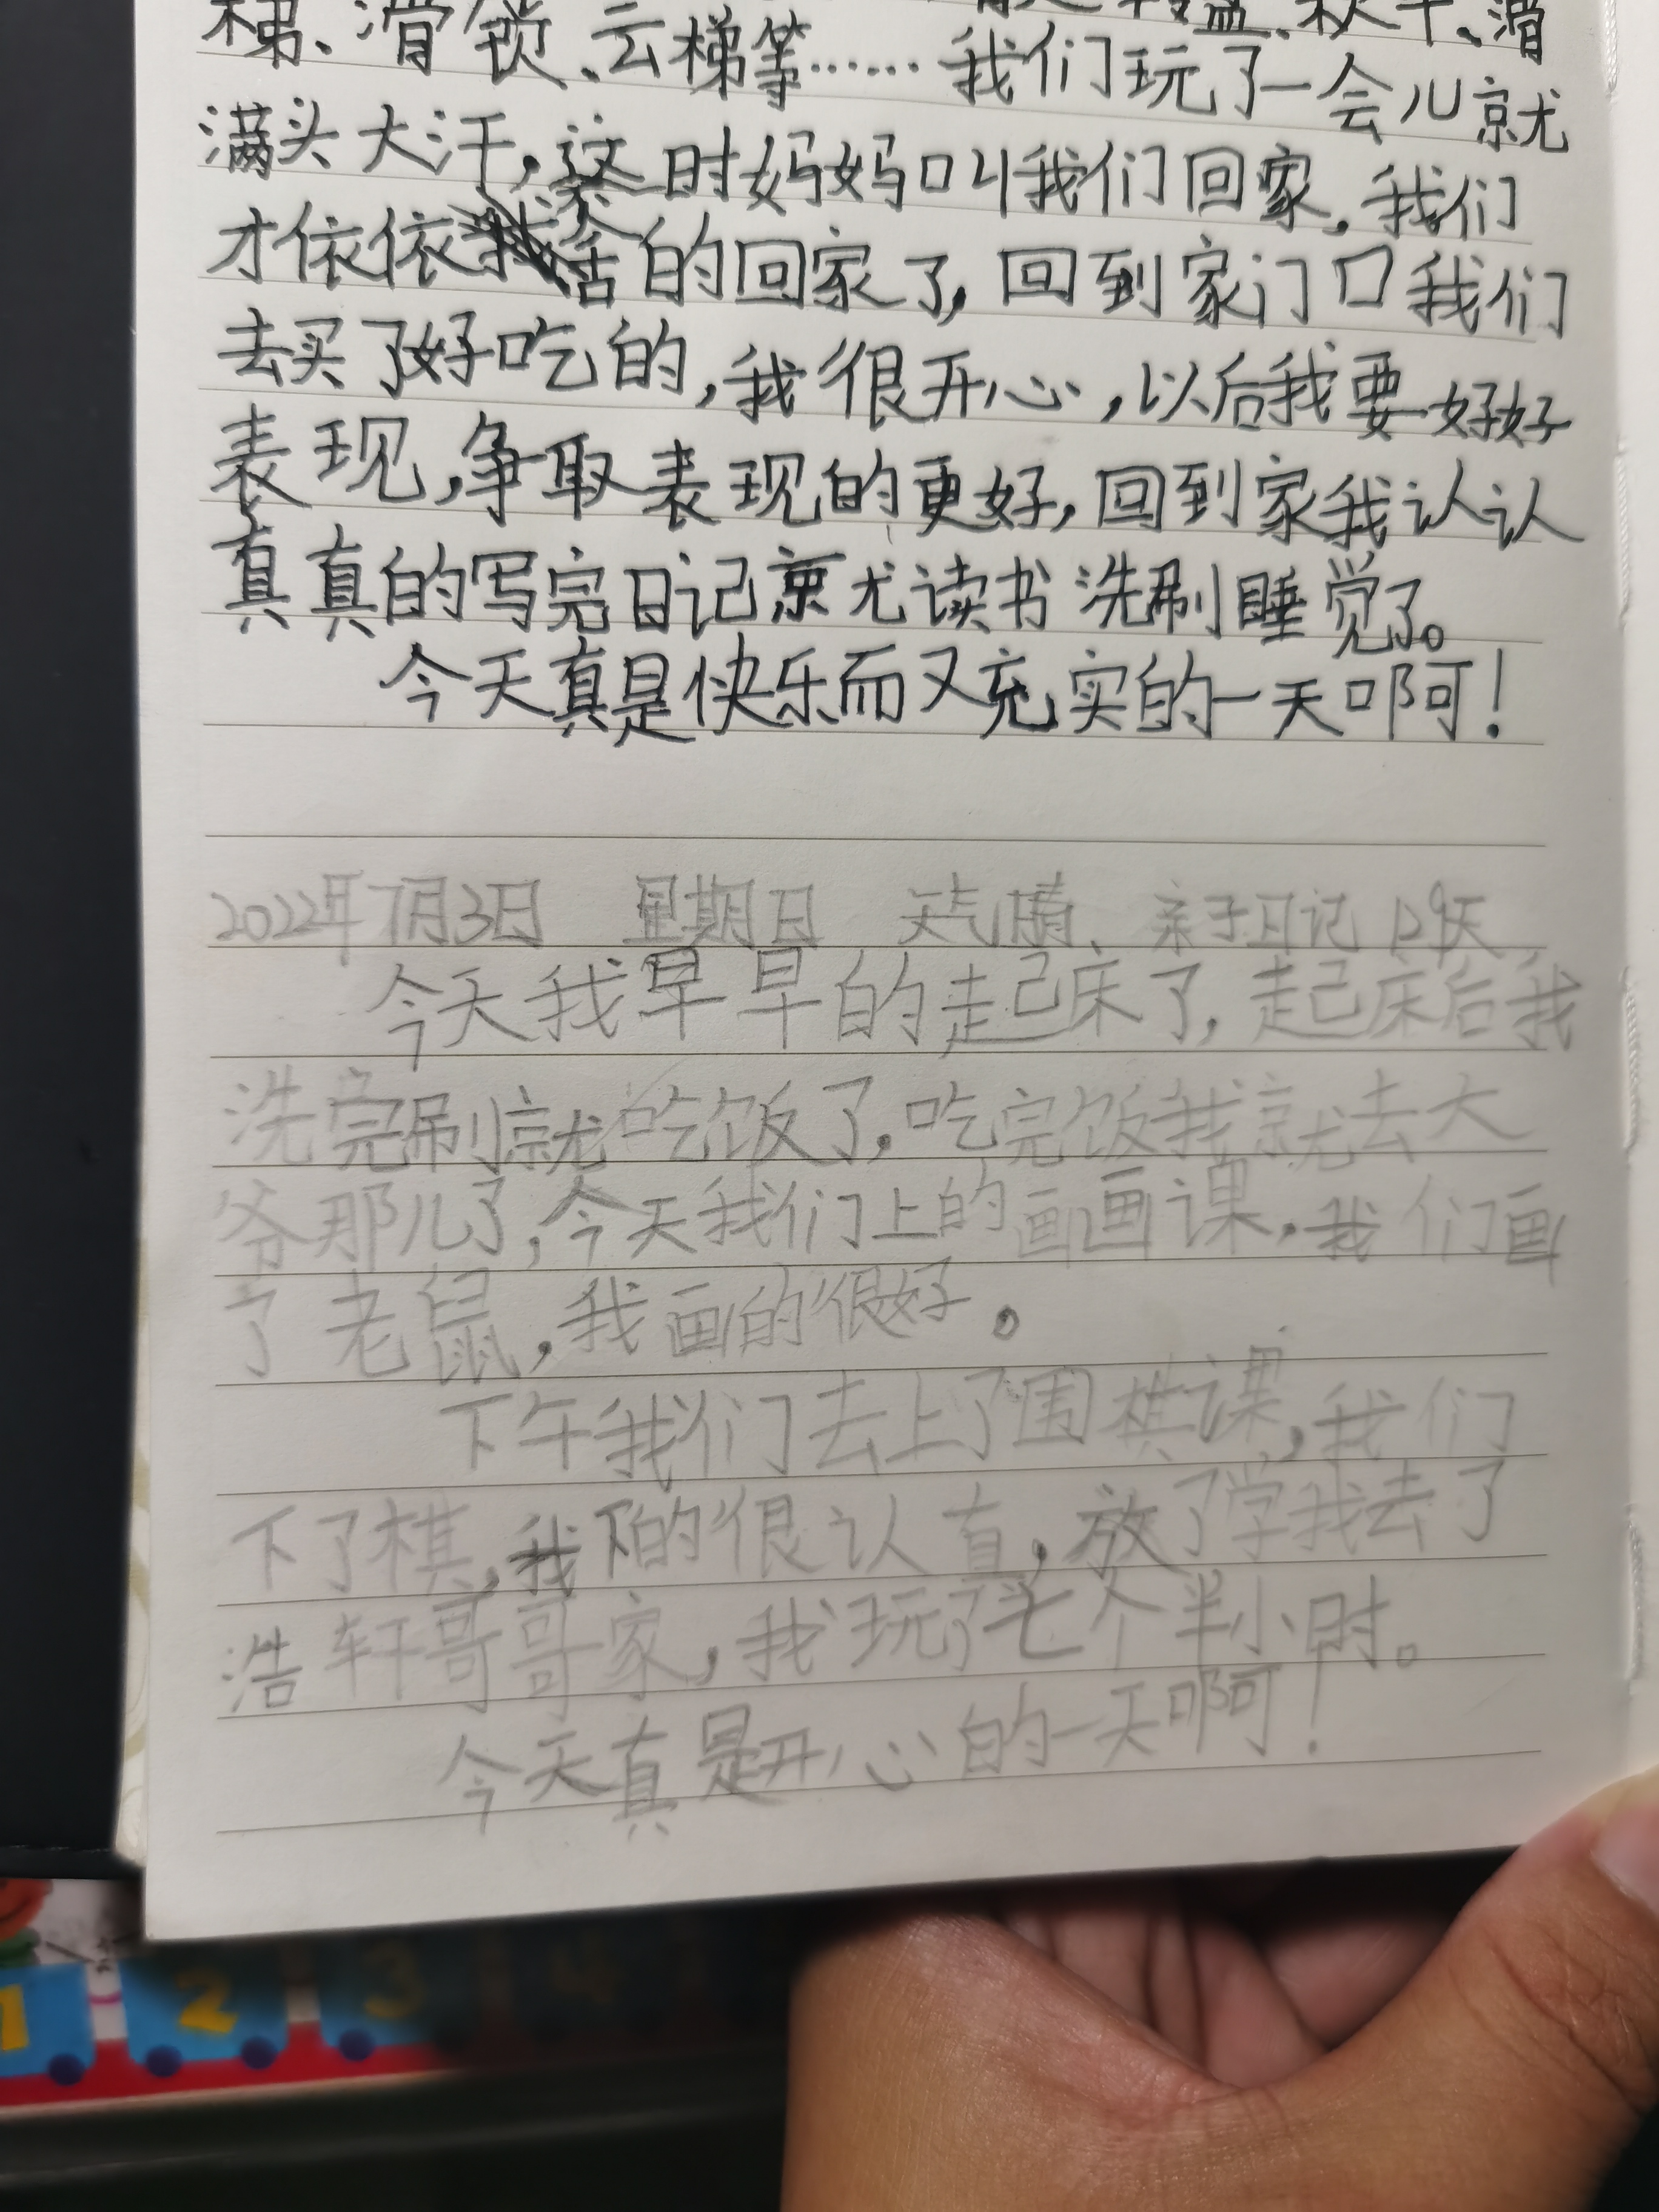 梯、滑锁、云梯等……我们玩了一会儿就
满头大汗,这时妈妈叫我们回家,我们
才依依不舍的回家了,回到家门口我们
去买了好吃的,我很开心,以后我要好好
表现,争取表现的更好,回到家我认认
真真的写完日记就读书洗刷睡觉了。
今天真是快乐而又充实的一天啊!
2022年7月3日 星期日 天气晴、亲子日记129天
今天我早早的起床了,起床后我
洗完刷就吃饭了,吃完饭我就去大
爷那儿了,今天我们上的画画课,我们画
了老鼠,我画的很好。
下午我们去上了围棋课,我们
下了棋,我下的很认真,放了学我去了
浩轩哥哥家,我玩了七个半小时。
今天真是开心的一天啊!
1
2
3
4